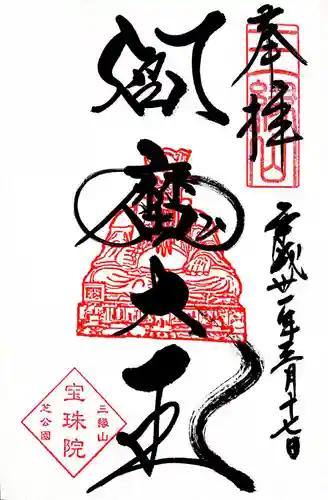 奉拝
三縁山
閻魔大王
平成卅一年三月十七日
三縁山
宝珠院
芝公園